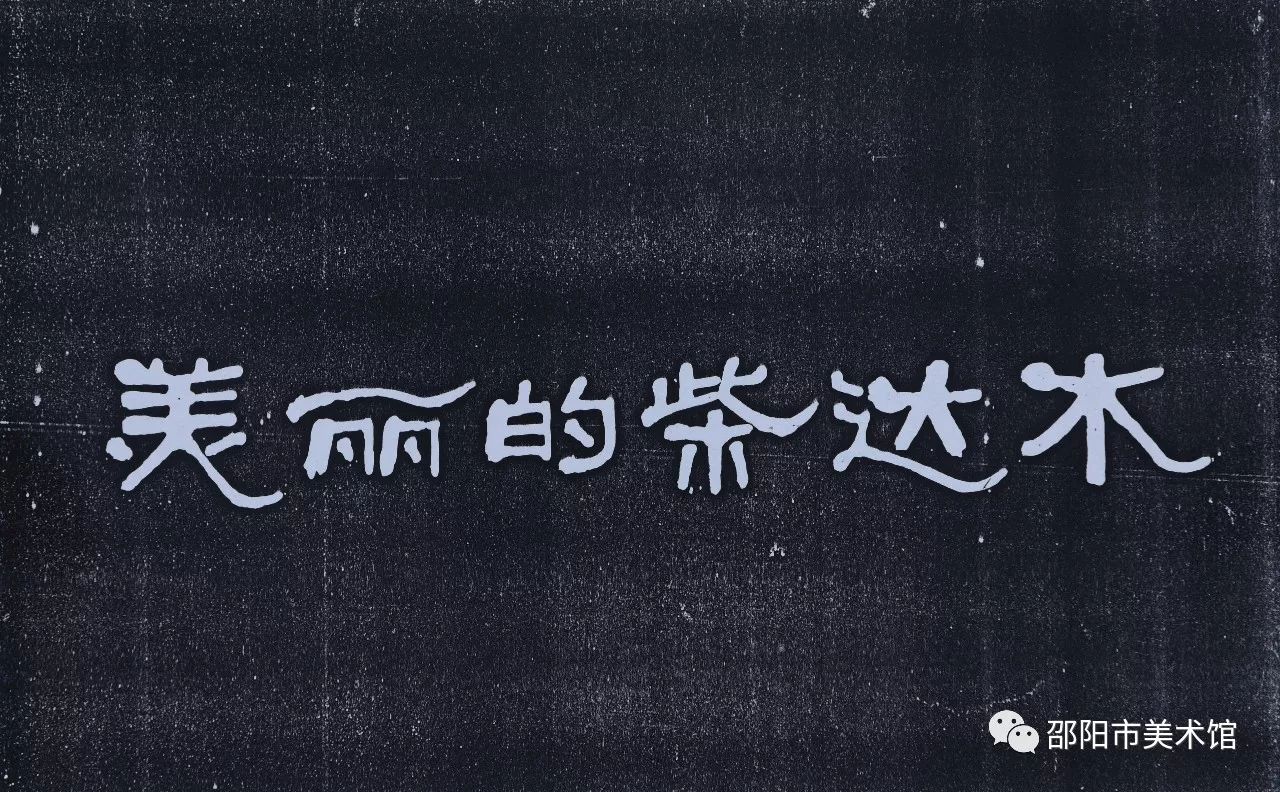 美丽的柴达木
邵阳市美术馆